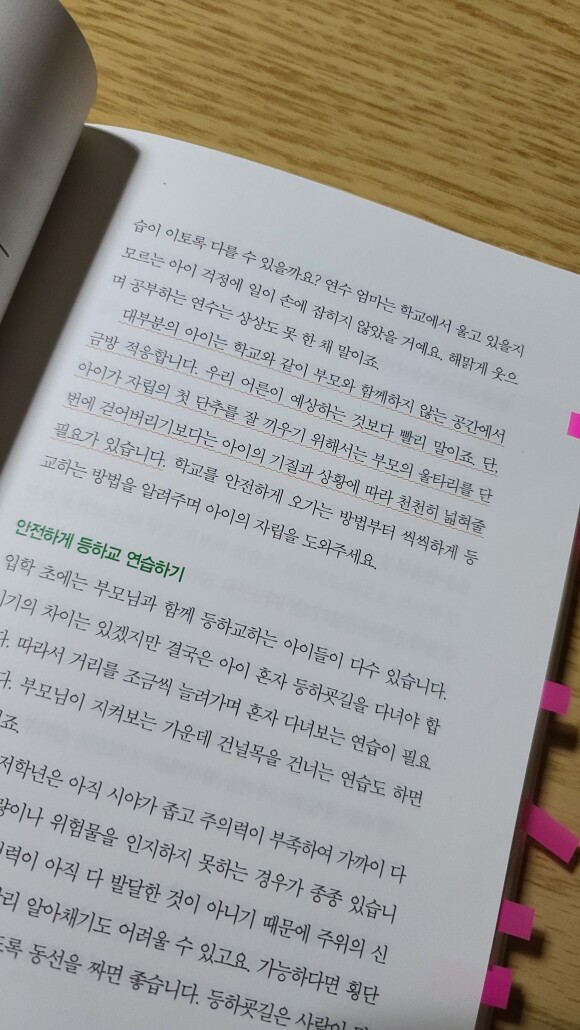 습이 이토록 다를 수 있을까요? 연수 엄마는 학교에서 울고 있을지
모르는 아이 걱정에 일이 손에 잡히지 않았을 거예요. 해맑게 웃으
며 공부하는 연수는 상상도 못 한 채 말이죠.
대부분의 아이는 학교와 같이 부모와 함께하지 않는 공간에서
금방 적응합니다. 우리 어른이 예상하는 것보다 빨리 말이죠. 단,
아이가 자립의 첫 단추를 잘 끼우기 위해서는 부모의 울타리를 단
번에 걷어버리기보다는 아이의 기질과 상황에 따라 천천히 넓혀줄
필요가 있습니다. 학교를 안전하게 오가는 방법부터 씩씩하게 등
교하는 방법을 알려주며 아이의 자립을 도와주세요.
안전하게 등하교 연습하기
입학 초에는 부모님과 함께 등하교하는 아이들이 다수 있습니다.
기의 차이는 있겠지만 결국은 아이 혼자 등하굣길을 다녀야 합
다. 따라서 거리를 조금씩 늘려가며 혼자 다녀보는 연습이 필요
다. 부모님이 지켜보는 가운데 건널목을 건너는 연습도 하면
죠.
저학년은 아직 시야가 좁고 주의력이 부족하여 가까이 다
량이나 위험물을 인지하지 못하는 경우가 종종 있습니
력이 아직 다 발달한 것이 아니기 때문에 주위의 신
알아채기도 어려울 수 있고요. 가능하다면 횡단
록 동선을 짜면 좋습니다. 등하굣길은 사람이